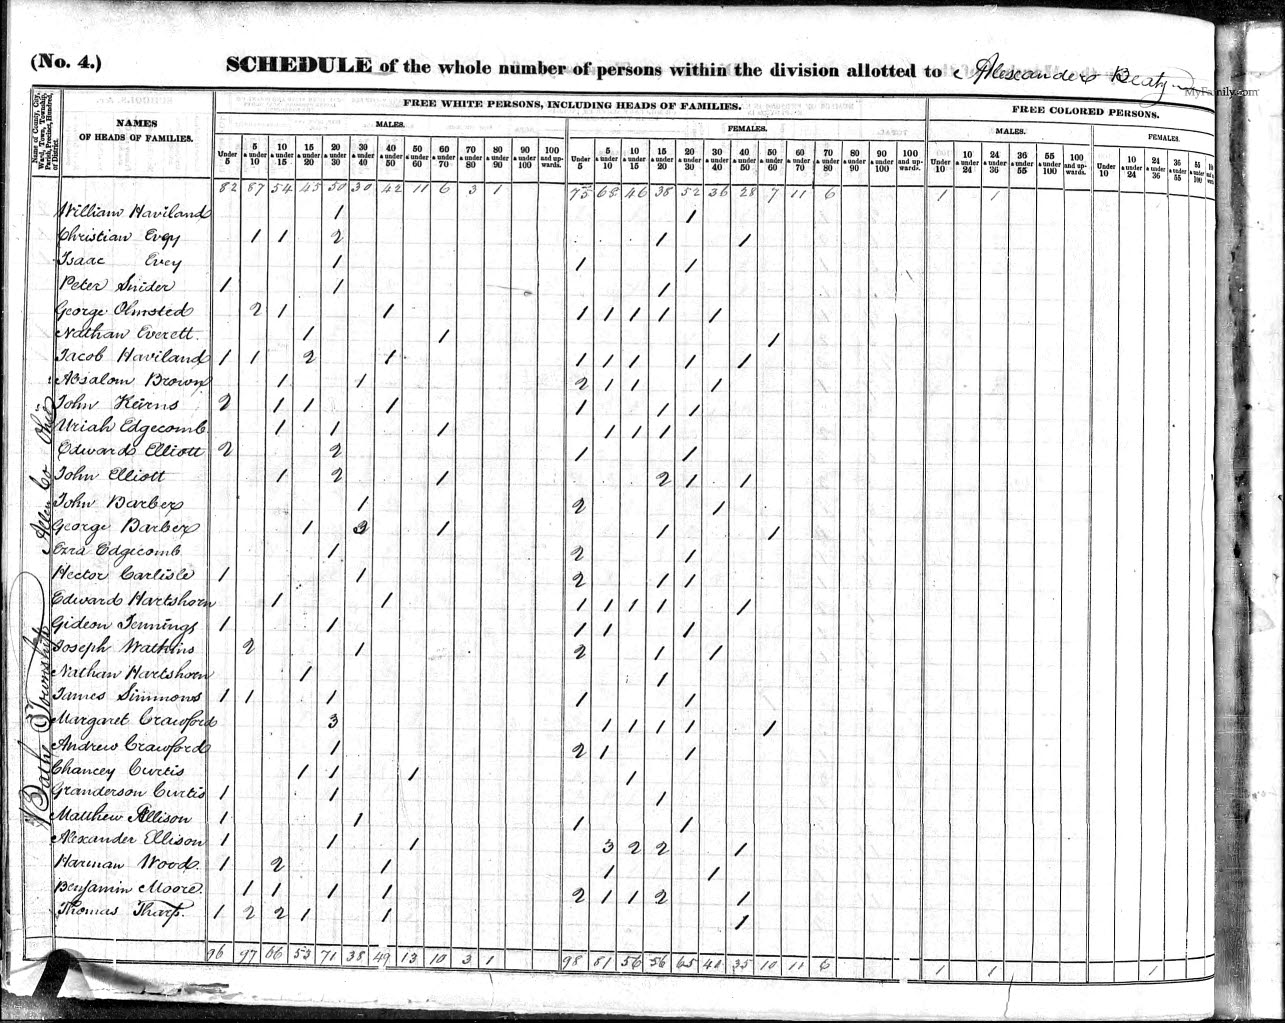 (No. 4.) SCHEDULE of the whole number of persons within the division allotted to Alexander Beaty
MyFamily.com
FREE WHITE PERSONS, INCLUDING HEADS OF FAMILIES. FREE COLORED PERSONS.
MALES. FEMALES. MALES. FEMALES.
Name of County, City, Ward, Town, Township, Parish, Precinct, Hundred, or District.
NAMES OF HEADS OF FAMILIES.
Under 5 5 & under 10 10 & under 15 15 & under 20 20 & under 30 30 & under 40 40 & under 50 50 & under 60 60 & under 70 70 & under 80 80 & under 90 90 & under 100 100 and upwards. Under 5 5 & under 10 10 & under 15 15 & under 20 20 & under 30 30 & under 40 40 & under 50 50 & under 60 60 & under 70 70 & under 80 80 & under 90 90 & under 100 100 and upwards. Under 10 10 & under 24 24 & under 36 36 & under 55 55 & under 100 100 and upwards. Under 10 10 & under 24 24 & under 36 36 & under 55 55 & under 100
82 87 54 45 50 30 42 11 6 3 1 75 68 46 38 52 36 28 7 11 6 1 1
William Haviland 1 1
Christian Evey 1 1 2 1 1
Isaac Evey 1 1 1
Peter Snider 1 1 1
George Olmsted 2 1 1 1 1 1 1 1
Nathan Everett. 1 1 1
Jacob Haviland 1 1 2 1 1 1 1 1 1
Absalom Brown 1 1 2 1 1 1
John Keirns 2 1 1 1 1 1 1
Uriah Edgecomb 1 1 1 1 1 1
Edward Elliott 2 2 1 1
John Elliott 1 2 1 2 1 1
John Barber 1 2 1
George Barber 1 3 1 1 1
Ezra Edgecomb 1 2 1
Hector Carlisle 1 1 2 1 1
Edward Hartshorn 1 1 1 1 1 1 1
Gideon Jennings 1 1 1 1 1
Joseph Wathins 2 1 2 1 1
Nathan Hartshorn 1 1
James Simmons 1 1 1 1 1
Margaret Crawford 3 1 1 1 1 1
Andrew Crawford 1 2 1 1
Chancey Curtis 1 1 1 1
Granderson Curtis 1 1 1
Matthew Allison 1 1 1 1
Alexander Ellison 1 1 1 3 2 2 1
Harman Wood. 1 2 1 1 1
Benjamin Moore. 1 1 1 1 2 1 1 2 1
Thomas Tharp. 1 2 2 1 1 1
96 97 66 53 71 38 49 13 10 3 1 98 81 56 56 65 41 35 10 11 6 1 1 1
Bath Township Allen Co Ohio